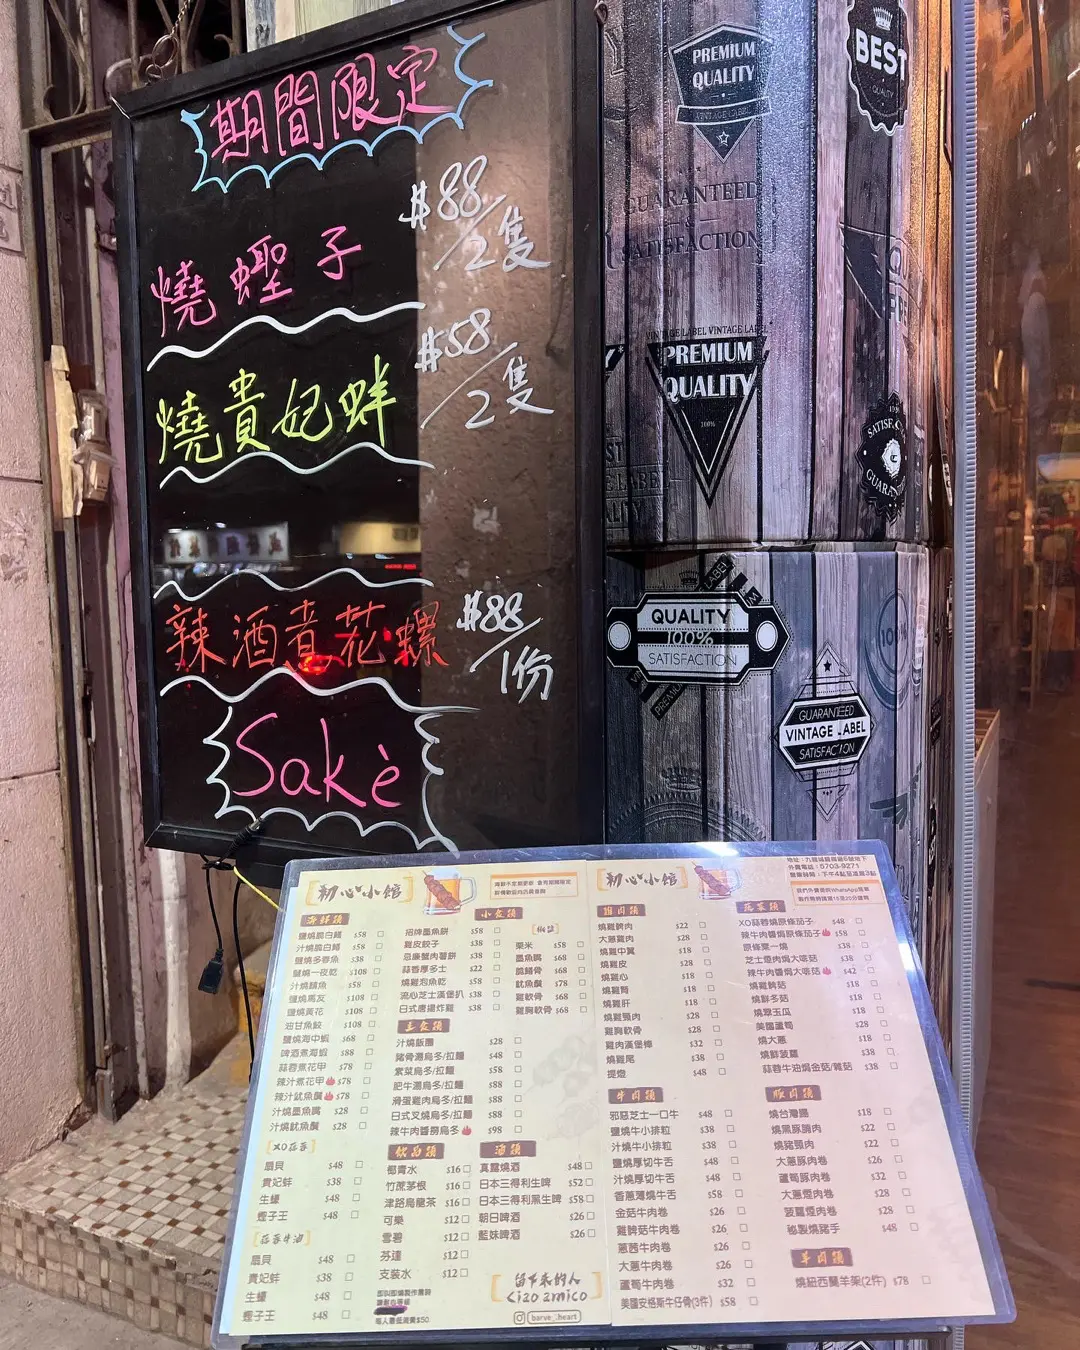 期間限定
燒蟶子
$88/2隻
燒貴妃蚌
$58/2隻
辣酒煮花螺
$88/1份
Sakè
PREMIUM
QUALITY
VINTAGE QUALITY
BEST
QUALITY
GUARANTEED
&
SATISFACTION
VINTAGE LABEL VINTAGE LABEL
PREMIUM
QUALITY
100%
QUALITY
100%
SATISFACTION
GUARANTEED
VINTAGE LABEL
SATISFACTION
初心小館
海鮮類
鹽燒脆白鱔 $58
汁燒脆白鱔 $58
鹽燒多春魚 $38
鹽燒一夜乾 $108
汁燒鯖魚 $58
鹽燒馬友 $108
鹽燒黃花 $108
油甘魚鮫 $108
鹽燒海中蝦 $68
啤酒煮海蝦 $88
蒜蓉煮花甲 $78
辣汁煮花甲 $78
辣汁魷魚鬚 $78
汁燒墨魚嘴 $28
汁燒魷魚鬚 $28
XO蒜蓉
扇貝 $48
貴妃蚌 $38
生蠔 $48
蟶子王 $48
蒜蓉牛油
扇貝 $48
貴妃蚌 $38
生蠔 $48
蟶子王 $48
小食類
招牌墨魚餅 $58
雞皮餃子 $38
忌廉蟹肉薯餅 $38
蒜香厚多士 $22
燒雞泡魚乾 $58
流心芝士漢堡扒 $38
日式唐揚炸雞 $38
粟米 $58
墨魚嘴 $68
脆鱔骨 $68
魷魚鬚 $78
雞軟骨 $68
雞胸軟骨 $68
主食類
汁燒飯團 $28
豬骨湯烏冬/拉麵 $48
素菜烏冬/拉麵 $58
肥牛湯烏冬/拉麵 $88
滑蛋雞肉烏冬/拉麵 $88
日式叉燒烏冬/拉麵 $88
辣牛肉醬撈烏冬 $98
飲品類
椰青水 $16
竹蔗茅根 $16
津路烏龍茶 $16
可樂 $12
雪碧 $12
芬達 $12
支裝水 $12
酒類
真露燒酒 $48
日本三得利生啤 $52
日本三得利黑生啤 $58
朝日啤酒 $26
藍妹啤酒 $26
每人最低消費$50
留下來的人
Ciao amico
初心小館
外賣電話：5703-9271
營業時間：下午4點至凌晨3點
雞肉類
燒雞髀肉 $22
大蔥雞肉 $28
燒雞中翼 $18
燒雞皮 $28
燒雞心 $18
燒雞腎 $18
燒雞肝 $18
燒雞頸肉 $28
雞胸軟骨 $28
雞肉漢堡棒 $32
燒雞尾 $38
提燈 $48
牛肉類
邪惡芝士一口牛 $48
鹽燒牛小排粒 $38
汁燒牛小排粒 $38
鹽燒厚切牛舌 $48
汁燒厚切牛舌 $48
香蔥薄燒牛舌 $58
金菇牛肉卷 $26
雞髀菇牛肉卷 $26
蔥茜牛肉卷 $26
大蔥牛肉卷 $26
蘆筍牛肉卷 $32
美國安格斯牛仔骨(3件) $58
蔬菜類
XO蒜蓉燒原條茄子 $48
辣牛肉醬燒原條茄子 $58
原條粟一燒 $38
芝士煙肉焗大啡菇 $38
辣牛肉醬焗大啡菇 $42
燒雞髀菇 $18
燒鮮冬菇 $18
燒翠玉瓜 $18
美國蘆筍 $28
燒大蔥 $18
燒鮮菠蘿 $38
蒜蓉牛油焗金菇/雜菇 $38
豚肉類
燒台灣腸 $18
燒黑豚腩肉 $22
燒豬頸肉 $22
大蔥豚肉卷 $26
蘆筍豚肉卷 $32
大蔥煙肉卷 $28
菠蘿煙肉卷 $28
秘製燒豬手 $48
羊肉類
燒紐西蘭羊架(2件) $78